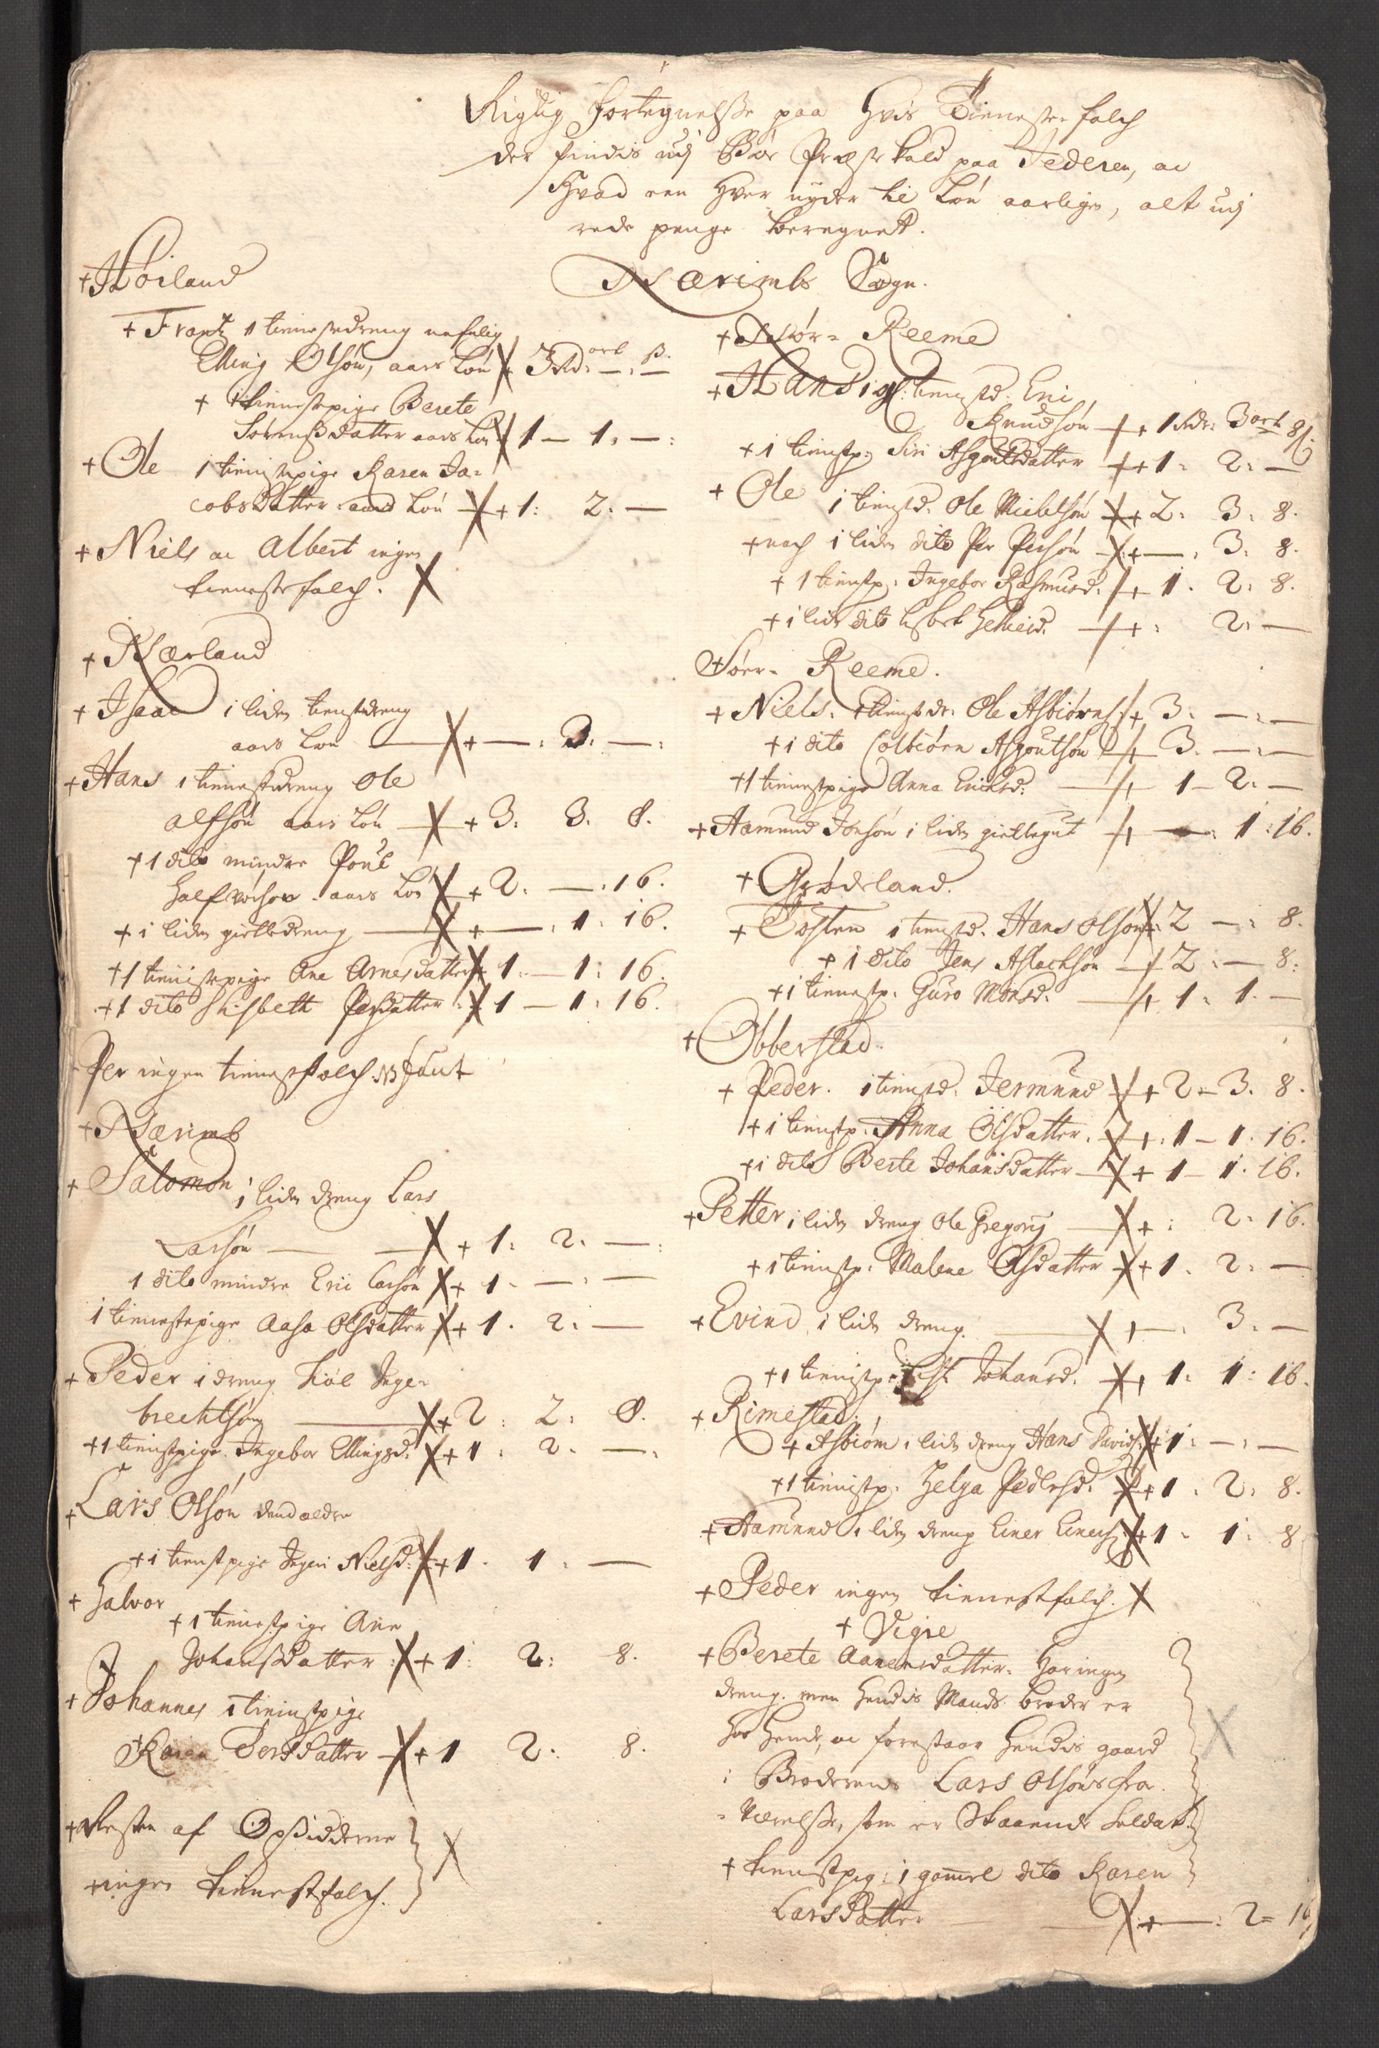 Rigtig fortegnelse paa hvis Tieneste folch
der findis udj Boe Præste kald paa Jederen, oc
hvad een hver nyder til Løn aarligen, alt udj
rede penge beregnet.
Nærimbs Sogn.
+ Høiland
+ Frantz 1 tienistedreng nefnlig
Elling Olsøn, aars Løn X 3 Rd: ort — ß. —
+ 1 tienistepige Berete
Sørenssdatter aars Løn X 1 — 1: —:
+ Ole 1 tienistpige Karen Ja-
cobsdatter aars Løn X + 1: 2: —
+ Niels oc Albert ingen
tienestefolch. X
+ Nærland
+ Isaac i liden tienstdreng
aars Løn — X + —: 3: —:
+ Hans 1 tienistdreng Ole
Alfsøn aars Løn — X + 3: 3. 8.
+ 1 dito mindre Poul
Halfvorsøn aars Løn X + 2: —: 16.
+ i liden gietledreng — X + —: 1: 16.
+ 1 tienistpige Ane Arnesdatter X 1: — 1: 16.
+ 1 dito Lisbeth Persdatter X 1 — 1: 16.
Per ingen tienestfolch NB fant
+ Nærimb
+ Salomon i liden dreng Lars
Larsøn — — X + 1: 2: —:
1 dito mindre Eric Larsøn X + 1 — : —
1 tienestepige Aasa Olsdatter X + 1. 2: —
+ Peder i dreng Tiøl Inge-
brechtsøn — X + 2: 2: 8.
+ 1 tienistpige Ingebor Ellingsd. X + 1: 2: —:
+ Lars Olsøn dend aeldre
+ 1 tienstpige Ingeri Nielsd: X + 1. 1: —
+ Halvor
+ 1 tienestpige Ane
Johanssdatter X + 1: 2: 8.
+ Johannes 1 tienistpige
Karen Persdatter — X + 1 2: 8.
+ Resten af Opsidderne
+ ingen tienestfolch. } X
+ Nør= Reeme
+ Hans 1 gl: tienistd. Eric
Knudsøn — + 1 Rdr: 3 ort 8 ß
+ 1 tienstp: Siri Asgoutsdatter — + + 1: 2: —
+ Ole 1 tienstd. Ole Michelsøn X + 2. 3. 8.
+ noch 1 liden dito Per Persøn X + — : 3: 8.
+ 1 tienstp: Ingebor Rasmusd: + 1. 2: 8.
+ i liden dito Lisbet — + : 2: —
+ Søer= Reeme.
+ Niels. 1 tienistdr: Ole Asbiørns: + 3. —: —
+ i dito Colbiørn Asgoutsøn + 3. —: —
+ 1 tienestpige Anna Erichsd: — + 1 — 2: —
+ Aamund Jonsøn i liden gietlegut + —: 1: 16.
+ Grødeland.
+ Tosten 1 tienstd. Hans Olsøn X 2 —: 8.
+ 1 dito Jens Aslachsøn + 2: — 8:
+ i tienestp. Guro Monsd. — + 1: 1: —
+ Obberstad
+ Peder. 1 tienstd. Jermund X + 2 — 3. 8.
+ 1 tienstp: Anna Olsdatter. X + : 1 — 1: 16.
+ i dito Berte Johansdatter — X + 1 — 1. 16.
+ Petter i liden dreng Ole Gregorij — X + : 2: 16.
+ 1 tienstp: Malene Olsdatter X + 1. 2: —
+ Evind i liden dreng. — X + —: 3. —
+ 1 tienistp: Lisb. Johansd. X + 1: 1: 16.
+ Rimestad
+ Asbiørn i liden dreng Hans Davids: X 1: —: —
+ 1 tienistp: Helga Pedersd. X + 1. 2: 8.
+ Aamund i liden dreng Einer Einers: X + 1: 1: 8
+ Peder ingen tienestfolch. X
+ Vigre
+ Berete Aanensdatter. Har ingen
dreng. men hendis Mands broder er
hos hende, oc forestaar hendis gaard
i Broderens Lars Olsøns fra-
værelse, som er Skaands Soldat X
+ tienistpig: 1 gamel dito Karen
Larsdatter — X + —: 2 = 16